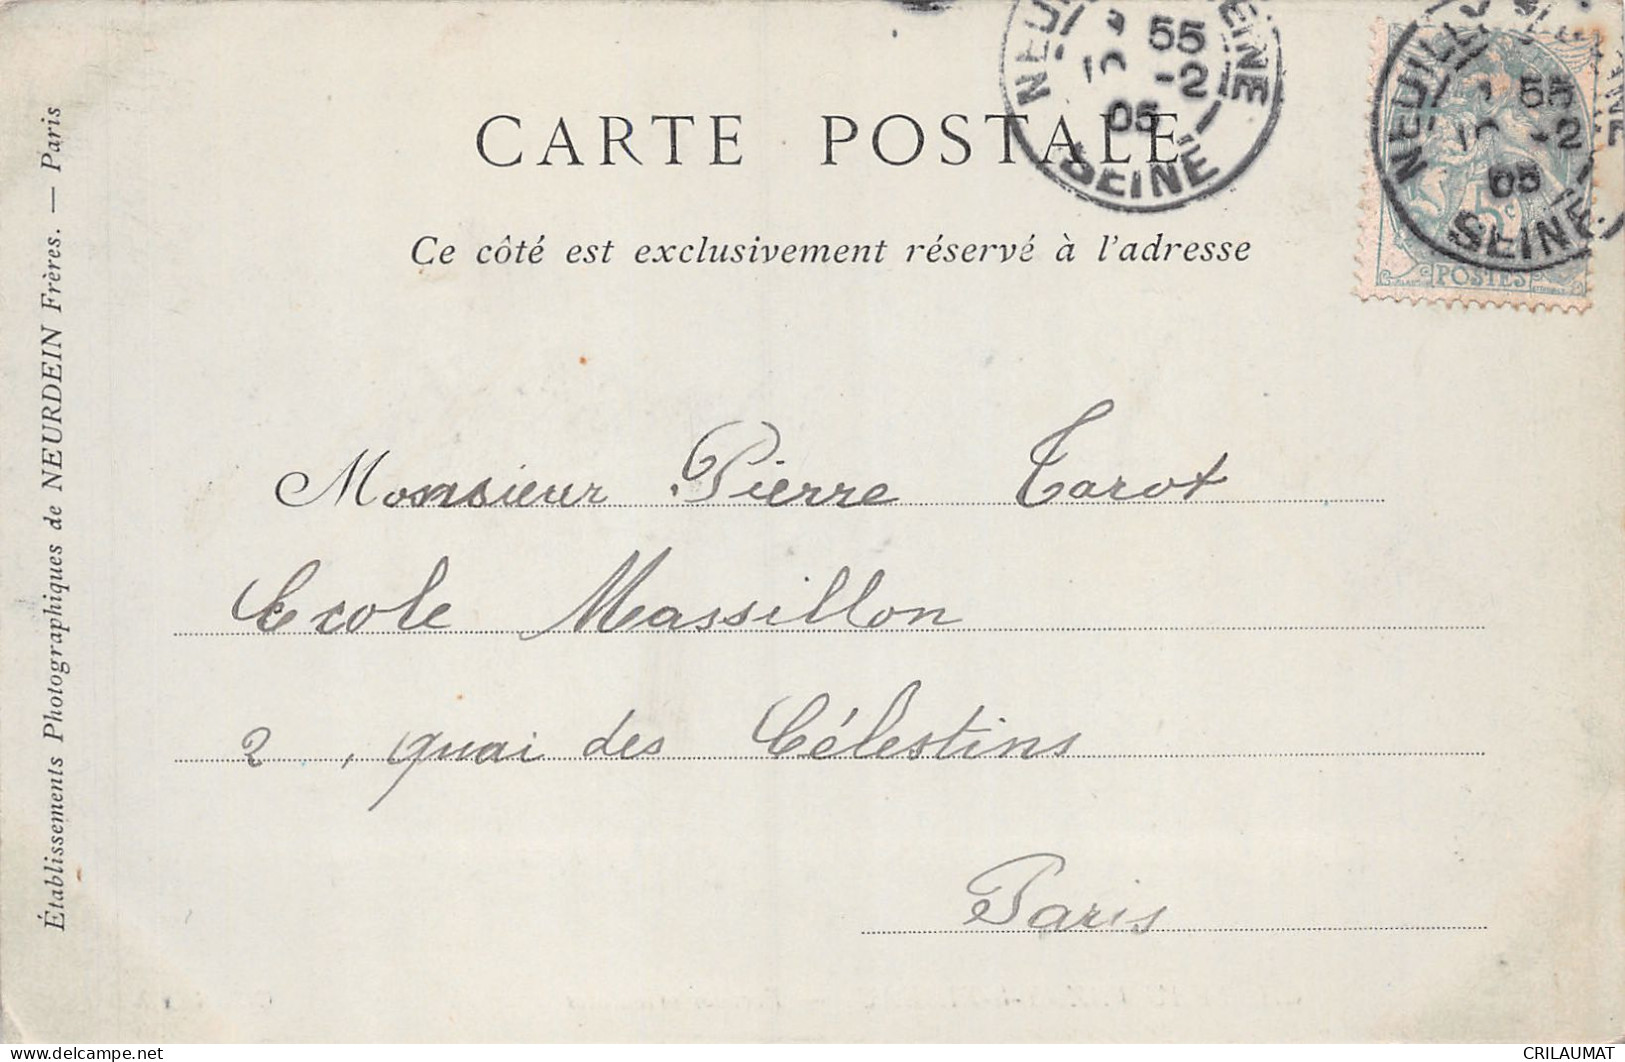 CARTE POSTALE
Ce côté est exclusivement réservé à l'adresse
Établissements Photographiques de NEURDEIN Frères. — Paris
55
-2
05
SEINE
NEUILLY
55
-2
05
SEINE
5c
POSTES
Monsieur Pierre Tarot
Ecole Massillon
2, quai des Célestins
Paris
CRILAUMAT